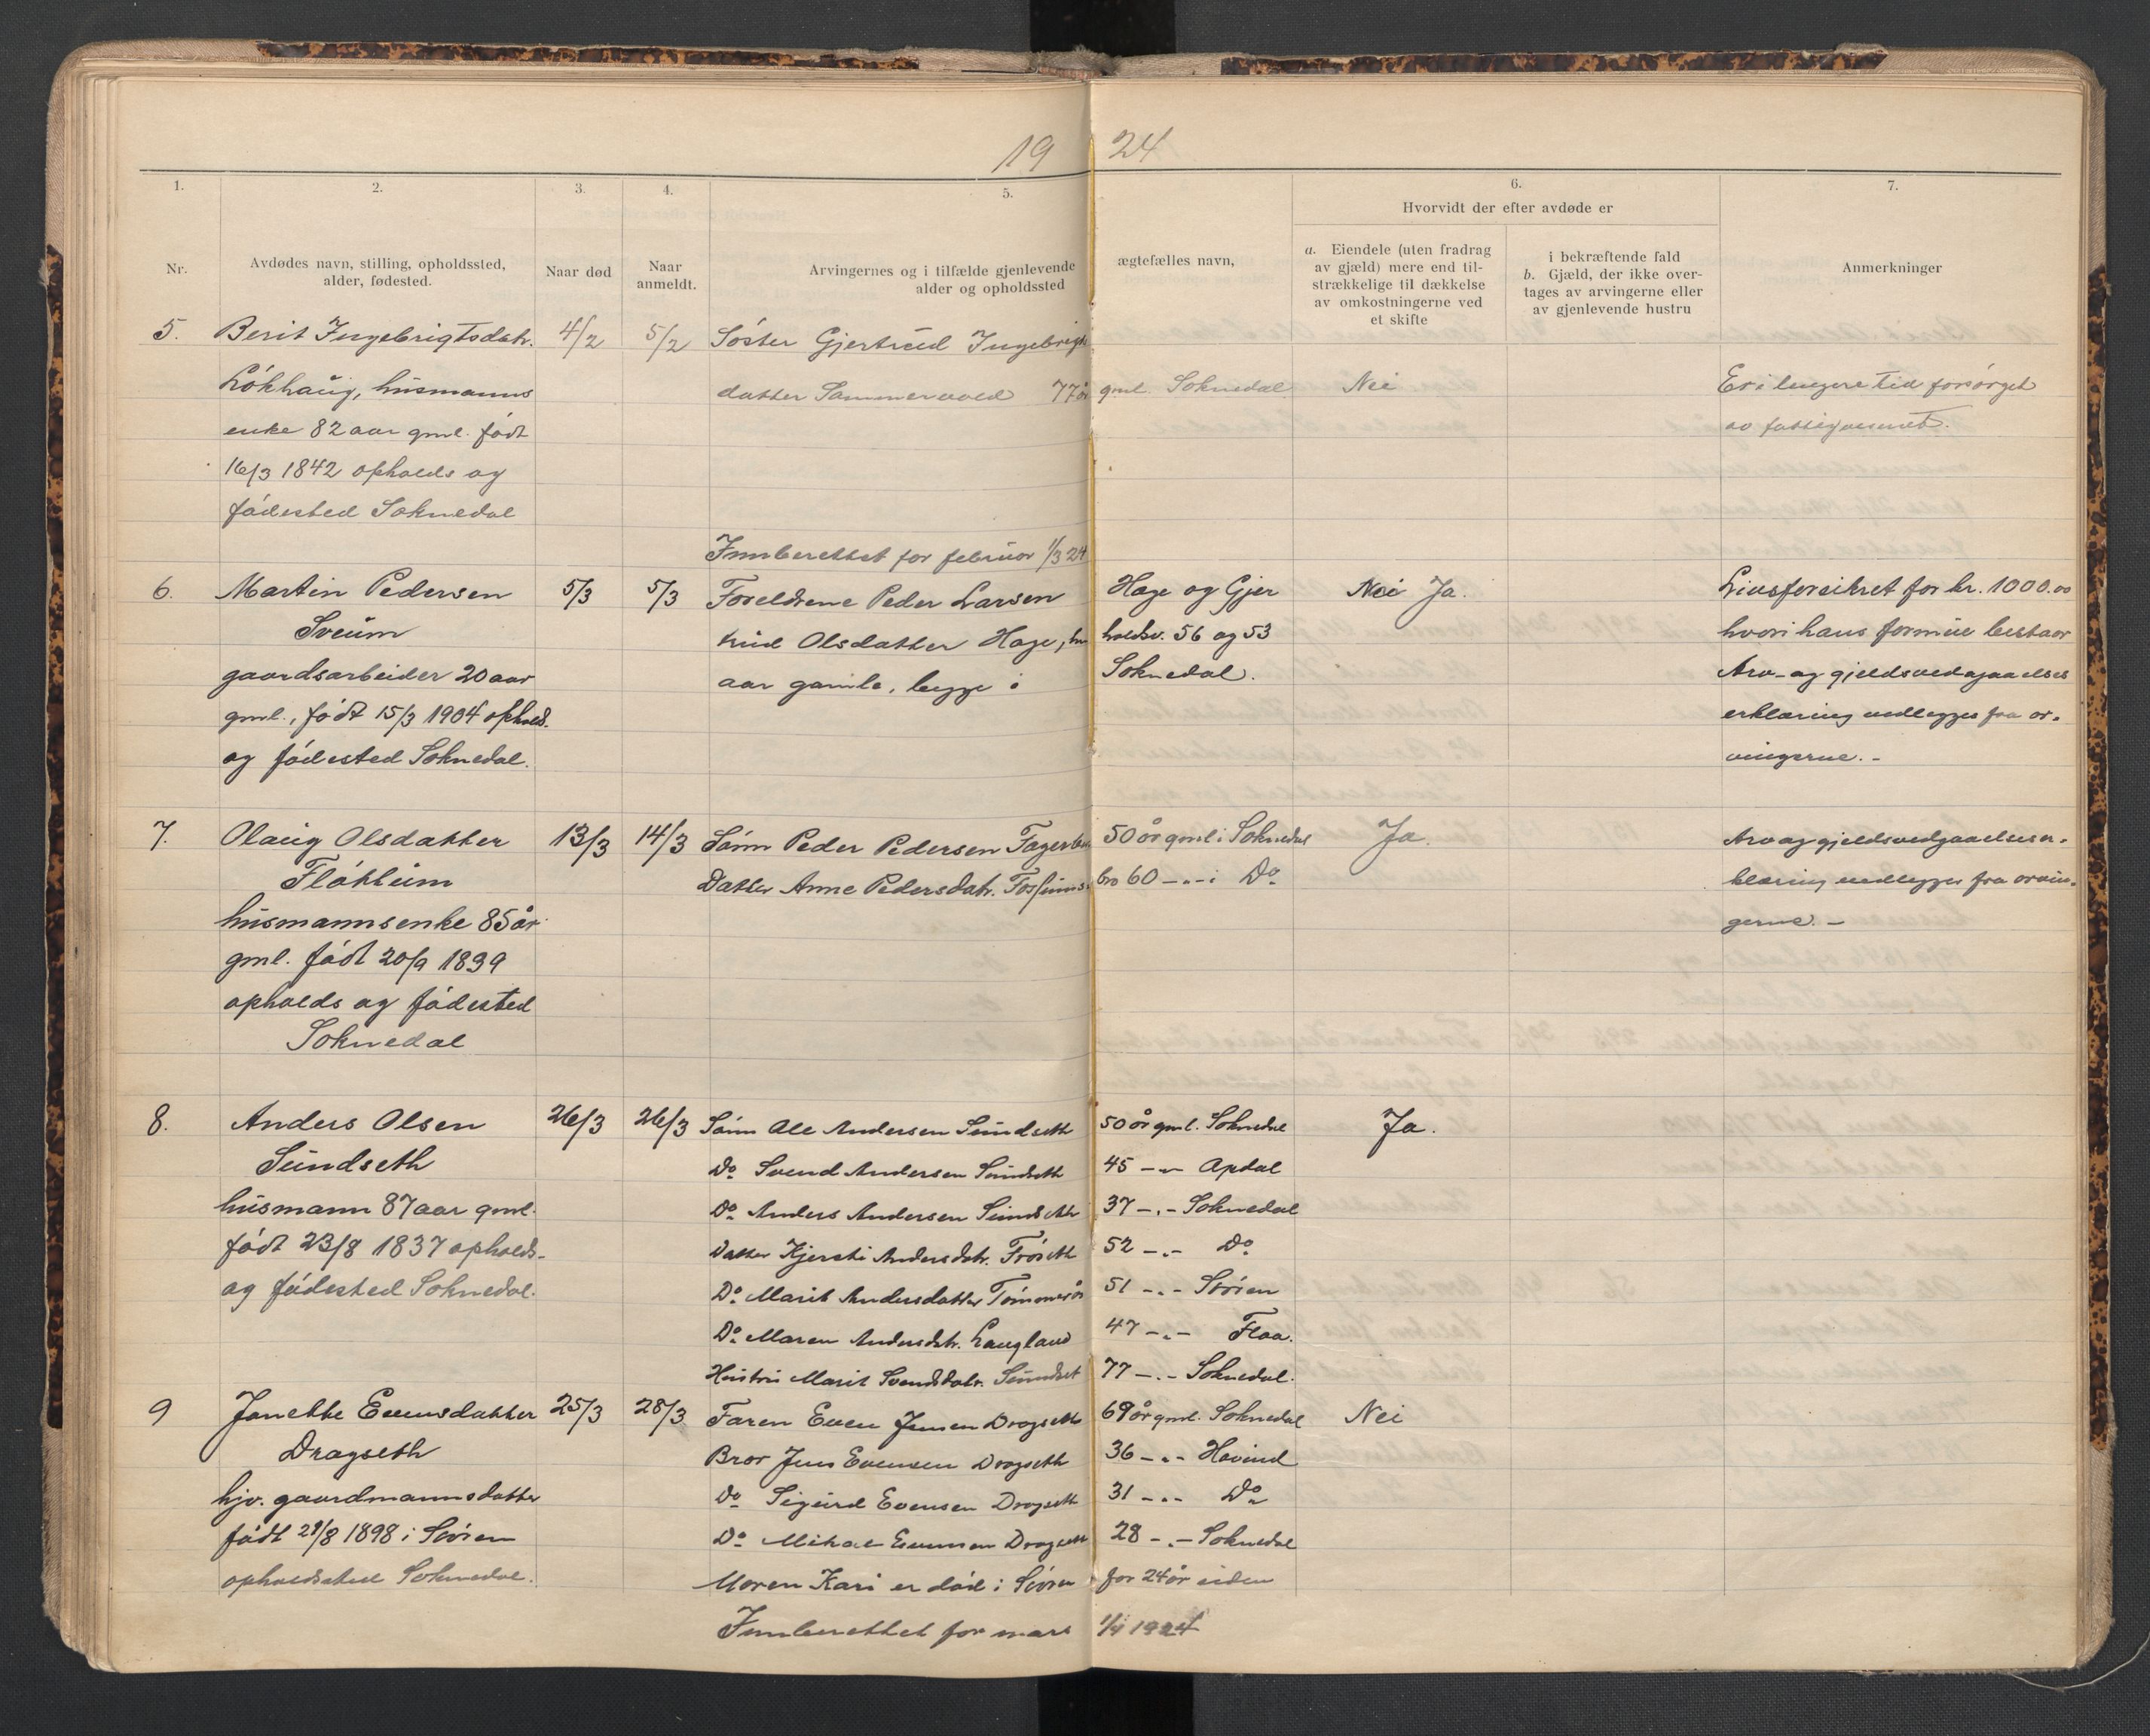 19 24
1. 2. 3. 4. 5. 6. 7.
Hvorvidt der efter avdøde er
Nr.
Avdødes navn, stilling, opholdssted,
alder, fødested.
Naar død
Naar
anmeldt.
Arvingernes og i tilfælde gjenlevende ægtefælles navn,
alder og opholdssted
a. Eiendele (uten fradrag
av gjæld) mere end til-
strækkelige til dækkelse
av omkostningerne ved
et skifte
i bekræftende fald
b. Gjæld, der ikke over-
tages av arvingerne eller
av gjenlevende hustru
Anmerkninger
5. Berit Ingebrigtsdatr. 4/2 5/2 Søster Gjertrud Ingebrigts
Løkhaug, husmanns datter Sommervold 77 år gml. Soknedal Nei Er i lengere tid forsørget
enke 82 aar gml. født av fattigvesenet.
16/3 1842 opholds og
fødested Soknedal
Innberettet for februar 1/3 24
6. Martin Pedersen 5/3 5/3 Foreldrene Peder Larsen Hage og Gjer Nei Ja. Livsforsikret for kr. 1000.00
Sveum trud Olsdatter Hage, hen holdsv. 56 og 53 hvori hans formue bestaar
gaardsarbeider 20 aar aar gamle, begge i Soknedal. Arv- og gjeldsvedgaaelses
gml., født 15/3 1904 ophold. erklæring vedlegges fra ar-
og fødested Soknedal. vingerne. -
7. Olaug Olsdatter 13/3 14/3 Sønn Peder Pedersen 50 år gml i Soknedal Ja. Arv og gjeldsvedgaaelseser-
Fløkleim Datter Anne Pedersdatr. Fossums bro 60 -„- i Do klæring vedlegges fra arvin-
husmannsenke 85 år gerne. -
gml. født 20/9 1839
opholds og fødested
Soknedal
8. Anders Olsen 26/3 26/3 Sønn Ole Andersen Sundseth 50 år gml. Soknedal Ja.
Sundseth Do Svend Andersen Sundseth 45 -„- Opdal
husmann 87 aar gml. Do Anders Andersen Sundseth 37 -„- Soknedal
født 23/8 1837 opholds- Datter Kjersti Andersdatr. Frøseth 52 -„- Do
og fødested Soknedal. Do Marit Andersdatter 51 -„- Støren
Do Maren Andersdtr. Langland 47 -„- Flaa.
Hustru Marit Svendsdatr. Sundset 77 -„- Soknedal.
9 Janette Evensdatter 25/3 28/3 Faren Even Jensen Dragseth 69 år gml. Soknedal Nei
Dragseth Bror Jens Evensen Dragseth 36 -„- Hovind
hjv. gaardmannsdatter Do Sigurd Evensen Dragseth 31 -„- Do
født 29/8 1898 i Støren Do Mikal Evensen Dragseth 28 -„- Soknedal
opholdssted Soknedal. Moren Kari er død i Støren for 24 år siden
Innberettet for mars 1/4 1924